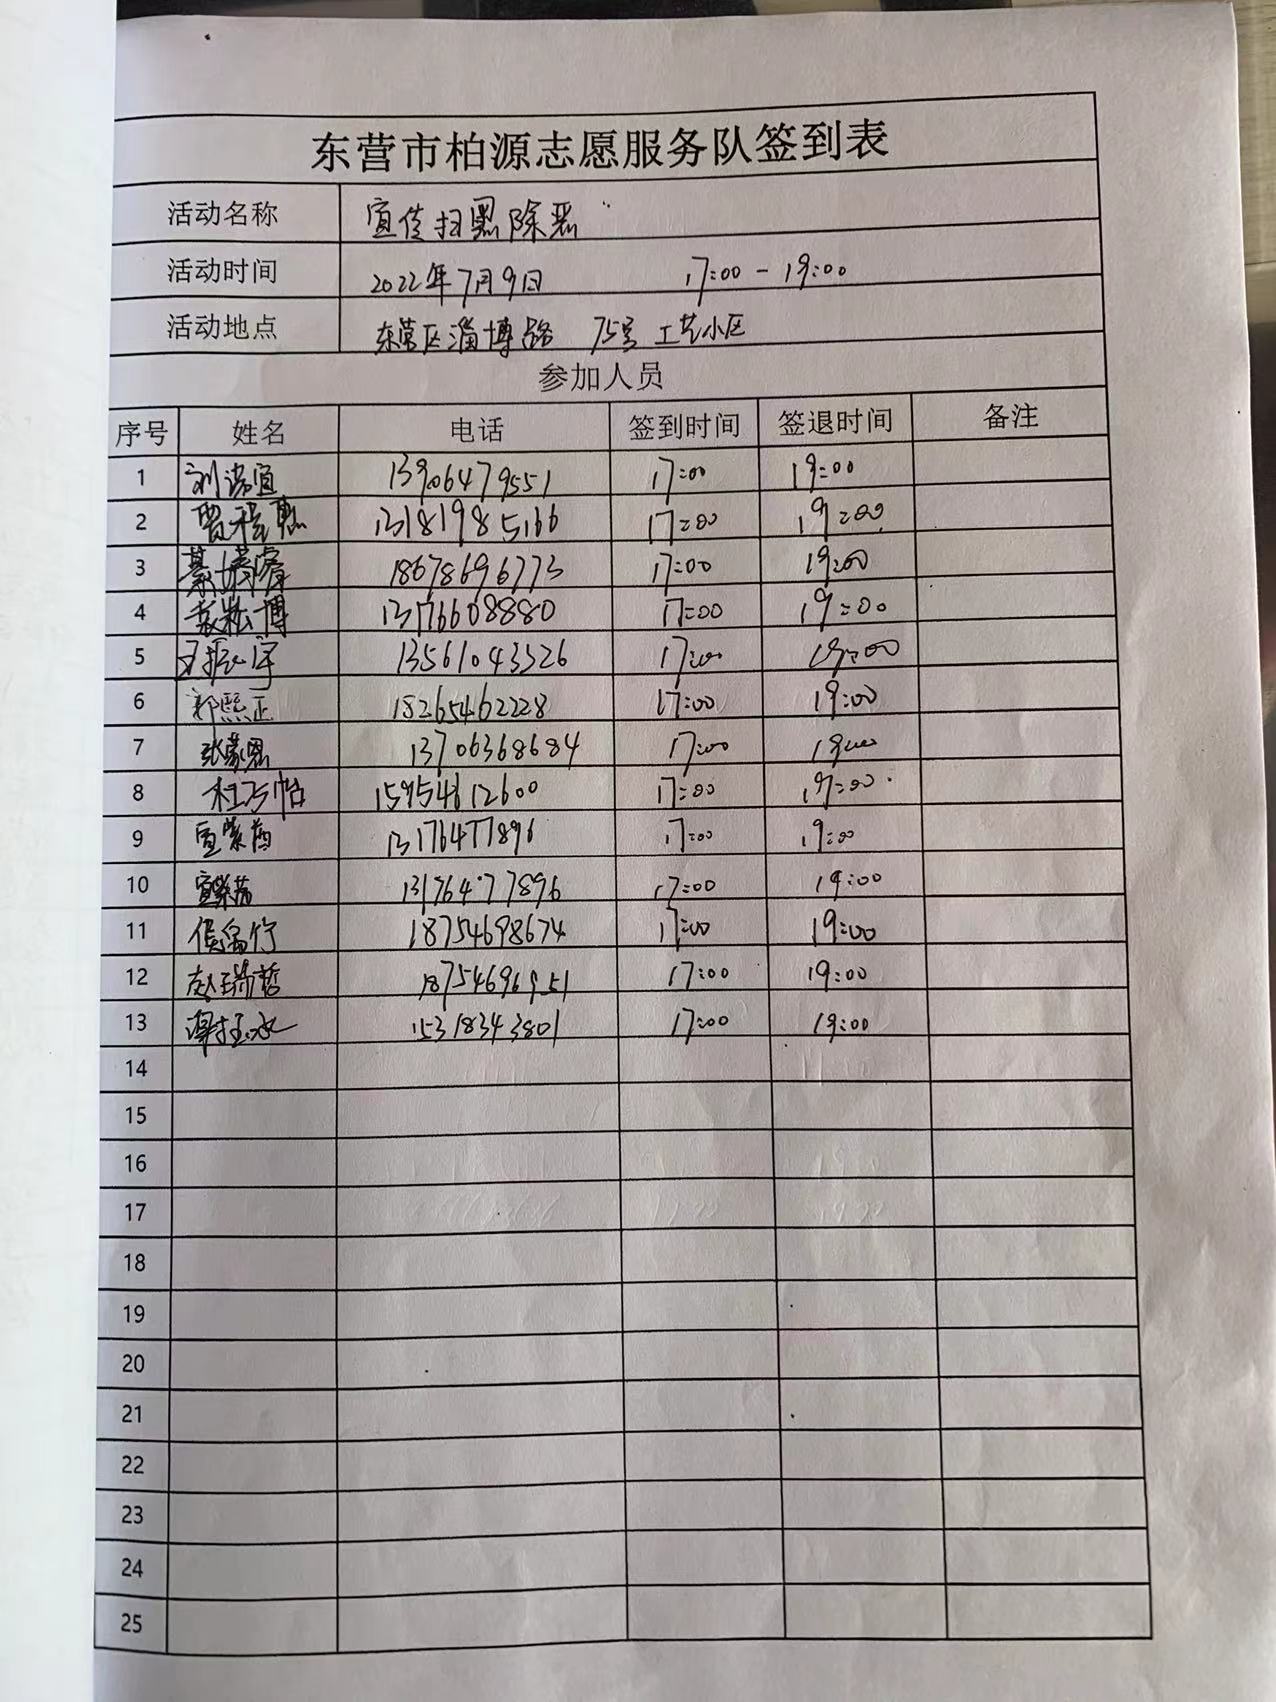 东营市柏源志愿服务队签到表
活动名称 宣传扫黑除恶
活动时间 2022年7月9日 17:00-19:00
活动地点 东营区淄博路 75号 工艺小区
参加人员
序号 姓名 电话 签到时间 签退时间 备注
1 刘诺宜 13906479551 17:00 19:00
2 13181985166 17:00 19:00
3 綦博睿 18678696773 17:00 19:00
4 袁崧博 13176608880 17:00 19:00
5 13561043326 17:00 19:00
6 郭熙正 18265462228 17:00 19:00
7 张家恩 13706368684 17:00 19:00
8 15954612600 17:00 19:00
9 13176477896 17:00 19:00
10 13176477896 17:00 19:00
11 18754698674 17:00 19:00
12 赵瑞哲 18754696951 17:00 19:00
13 15318343801 17:00 19:00
14
15
16
17
18
19
20
21
22
23
24
25